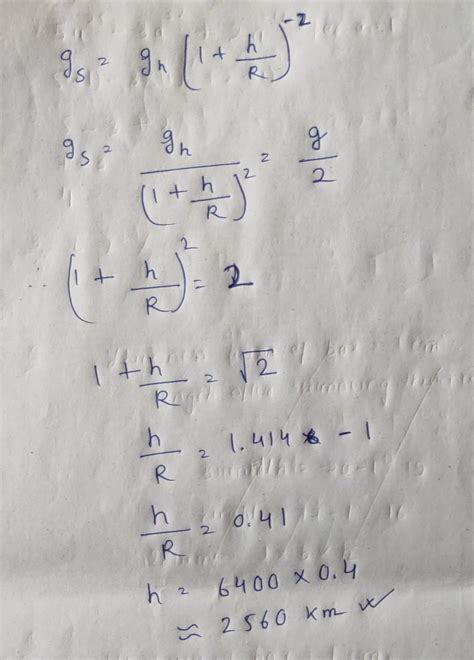 g_s = g_h (1 + h/R)^-2
g_s = g_h / (1 + h/R)^2 = g/2
∴ (1 + h/R)^2 = 2
1 + h/R = √2
h/R = 1.414 - 1
h/R = 0.41
h = 6400 × 0.4
≈ 2560 km